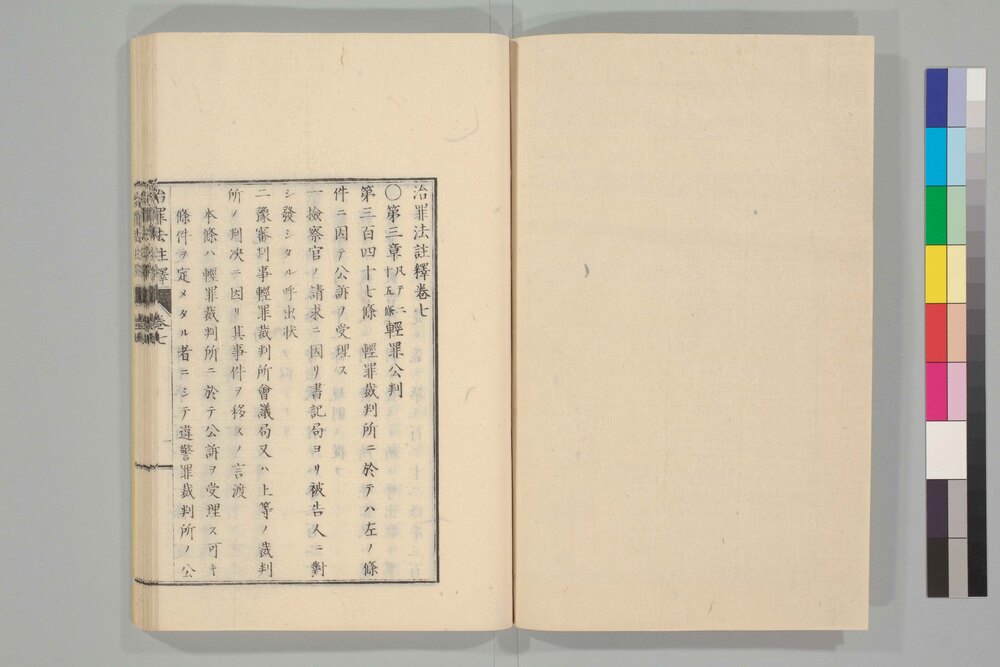 治罪法註釋卷七
○第三章凡テ二十五條輕罪公判
第三百四十七條　輕罪裁判所ニ於テハ左ノ條
件ニ因テ公訴ヲ受理ス
一檢察官ノ請求ニ因リ書記局ヨリ被告人ニ對
シ發シタル呼出狀
二豫審判事輕罪裁判所會議局又ハ上等ノ裁判
所ノ判决ニ因リ其事件ヲ移スノ言渡
本條ハ輕罪裁判所ニ於テ公訴ヲ受理ス可キ
條件ヲ定メタル者ニシテ違警罪裁判所ノ公
治罪法註釋　卷七